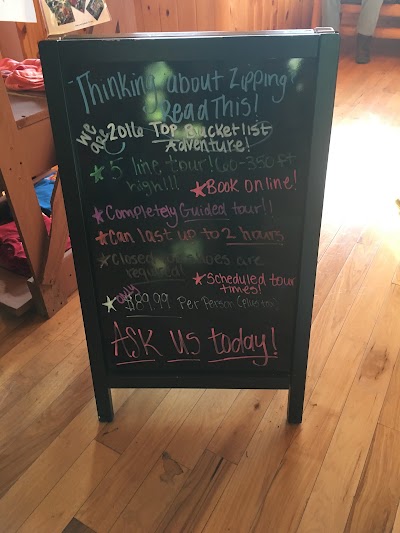 Thinking about Zipping?
Read This!
We are 2016 Top Bucketlist
Adventure!
★ 5 line tour! 60-350 ft
high!!!
★ Book online!
★ Completely Guided tour!!
★ Can last up to 2 hours
★ Closed shoes are
required!
★ Scheduled tour
times!
★ only $89.99 Per Person (plus tax)
Ask us today!